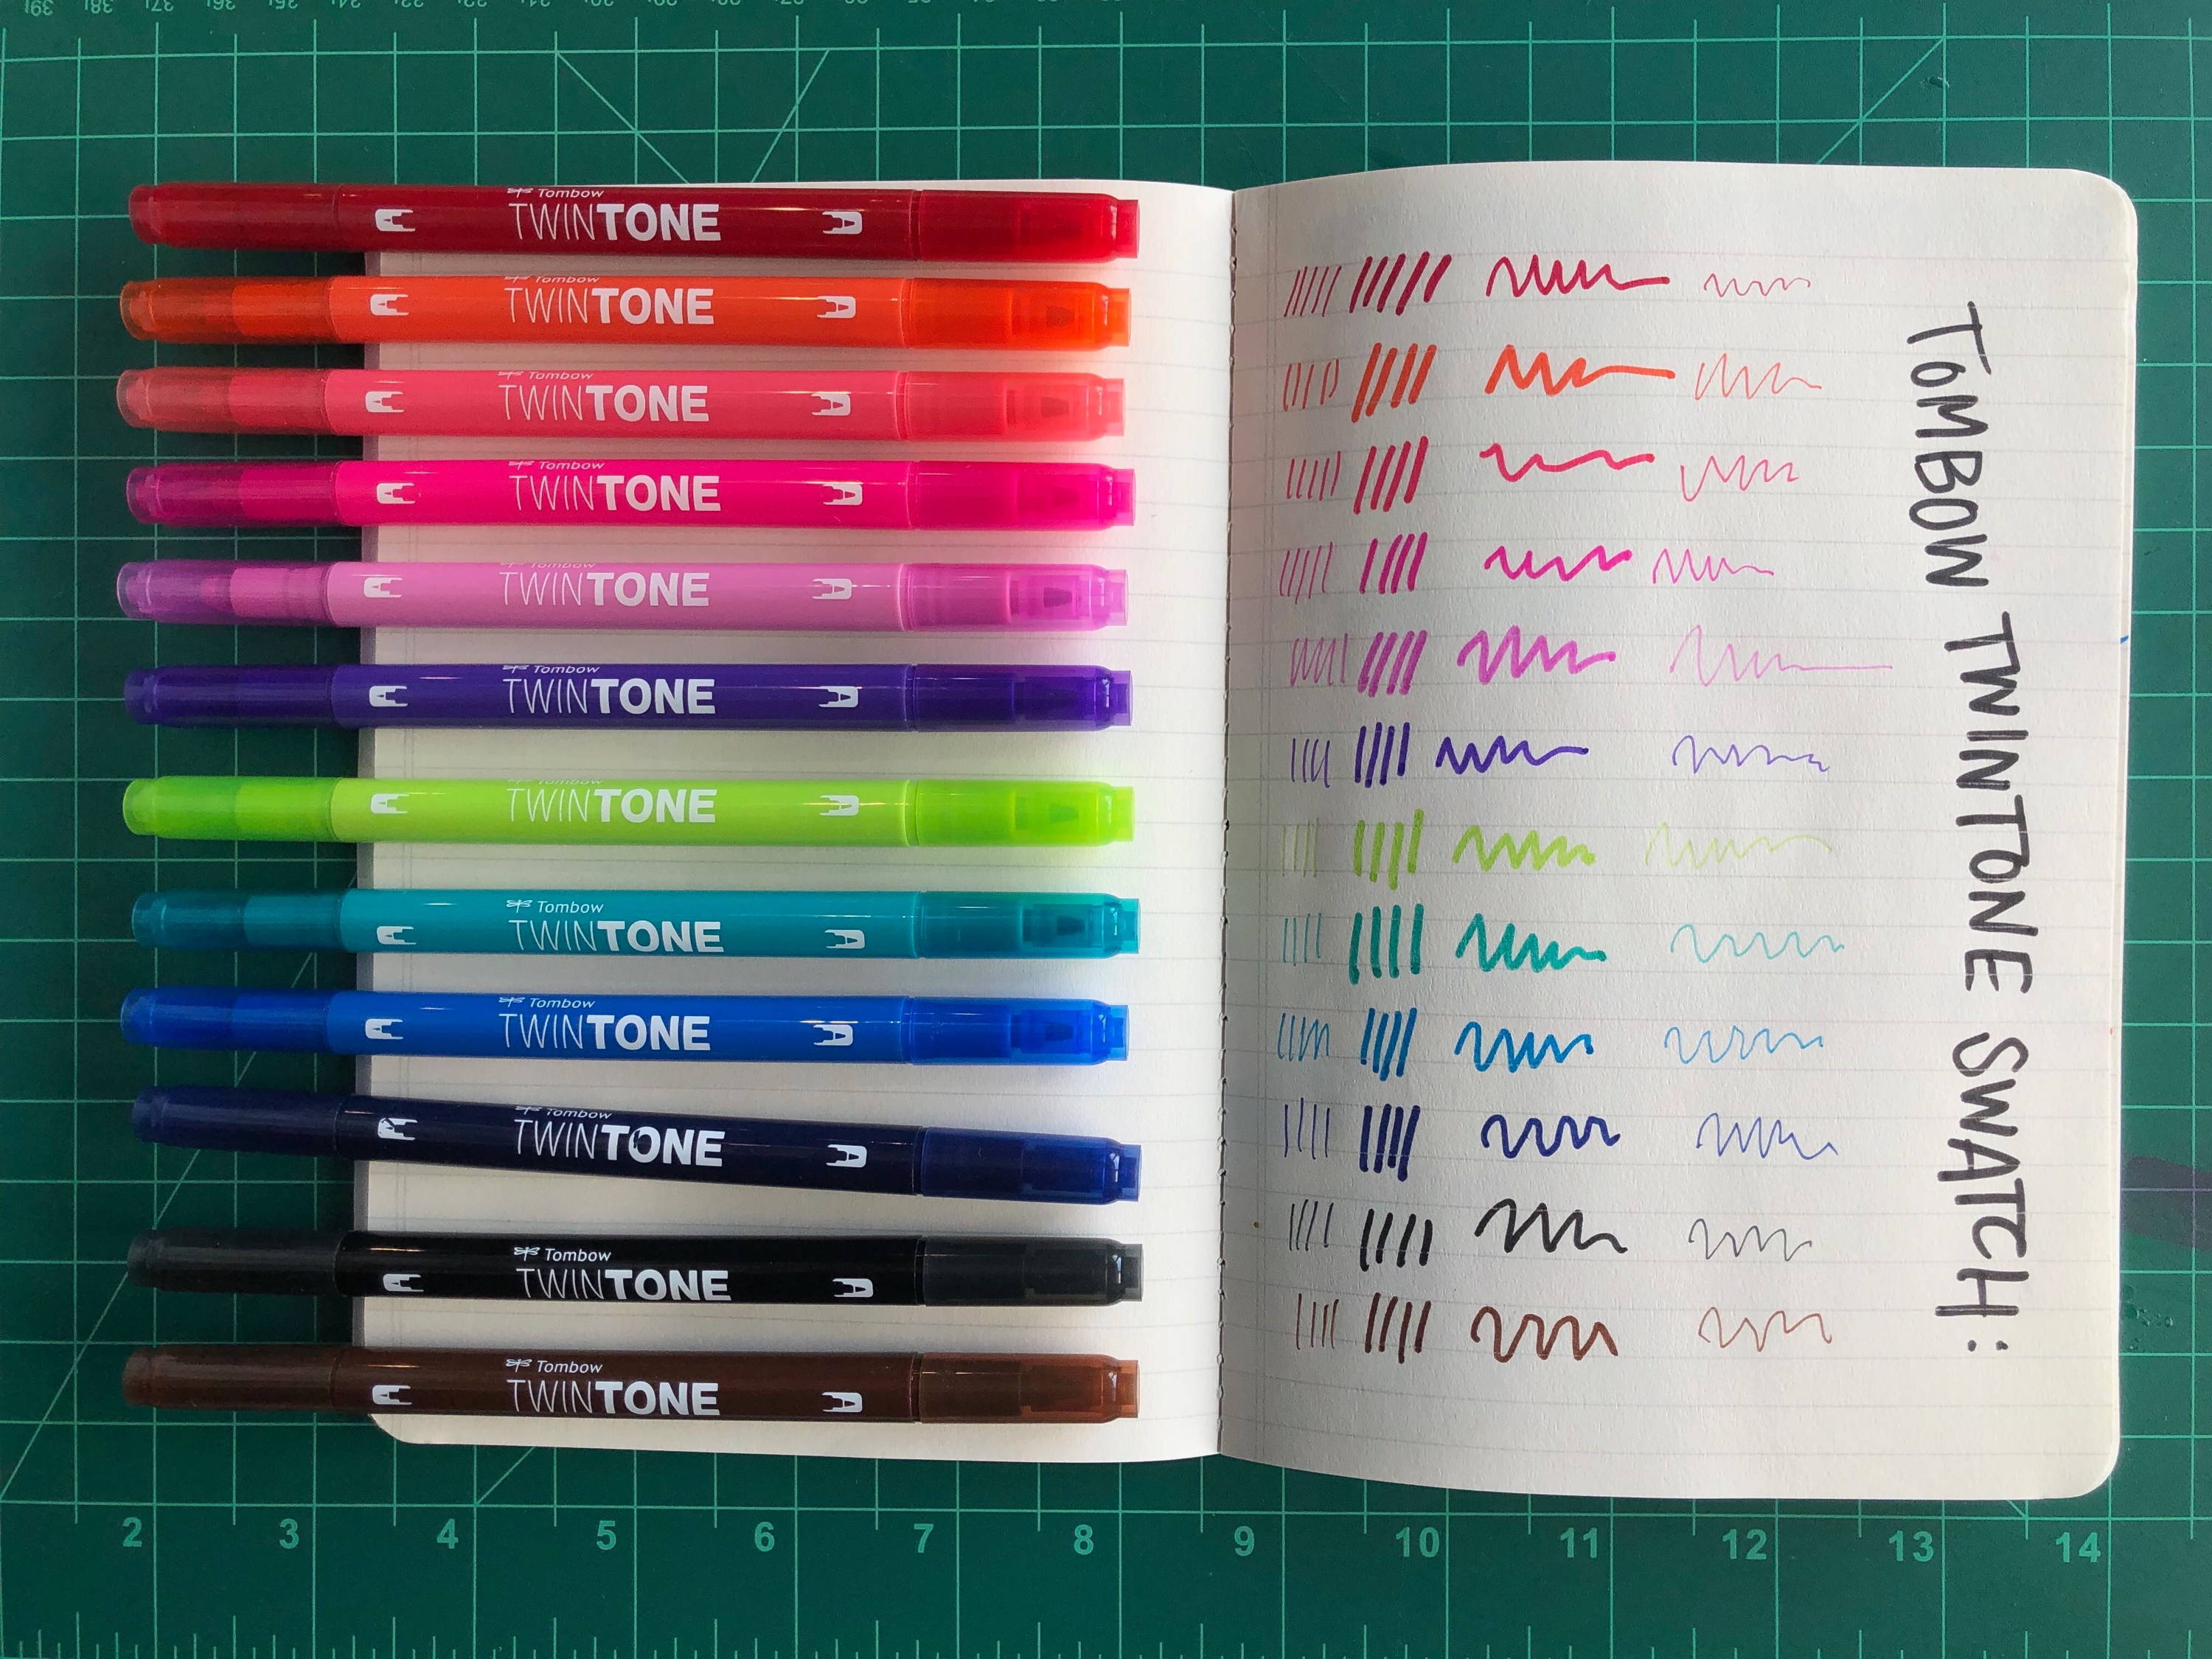 39 38 37 36 35 34 33 32
Tombow
TWINTONE
Tombow
TWINTONE
Tombow
TWINTONE
Tombow
TWINTONE
Tombow
TWINTONE
Tombow
TWINTONE
Tombow
TWINTONE
Tombow
TWINTONE
Tombow
TWINTONE
Tombow
TWINTONE
Tombow
TWINTONE
Tombow
TWINTONE
ToMBOW TWINTONE SWATCH:
2 3 4 5 6 7 8 9 10 11 12 13 14